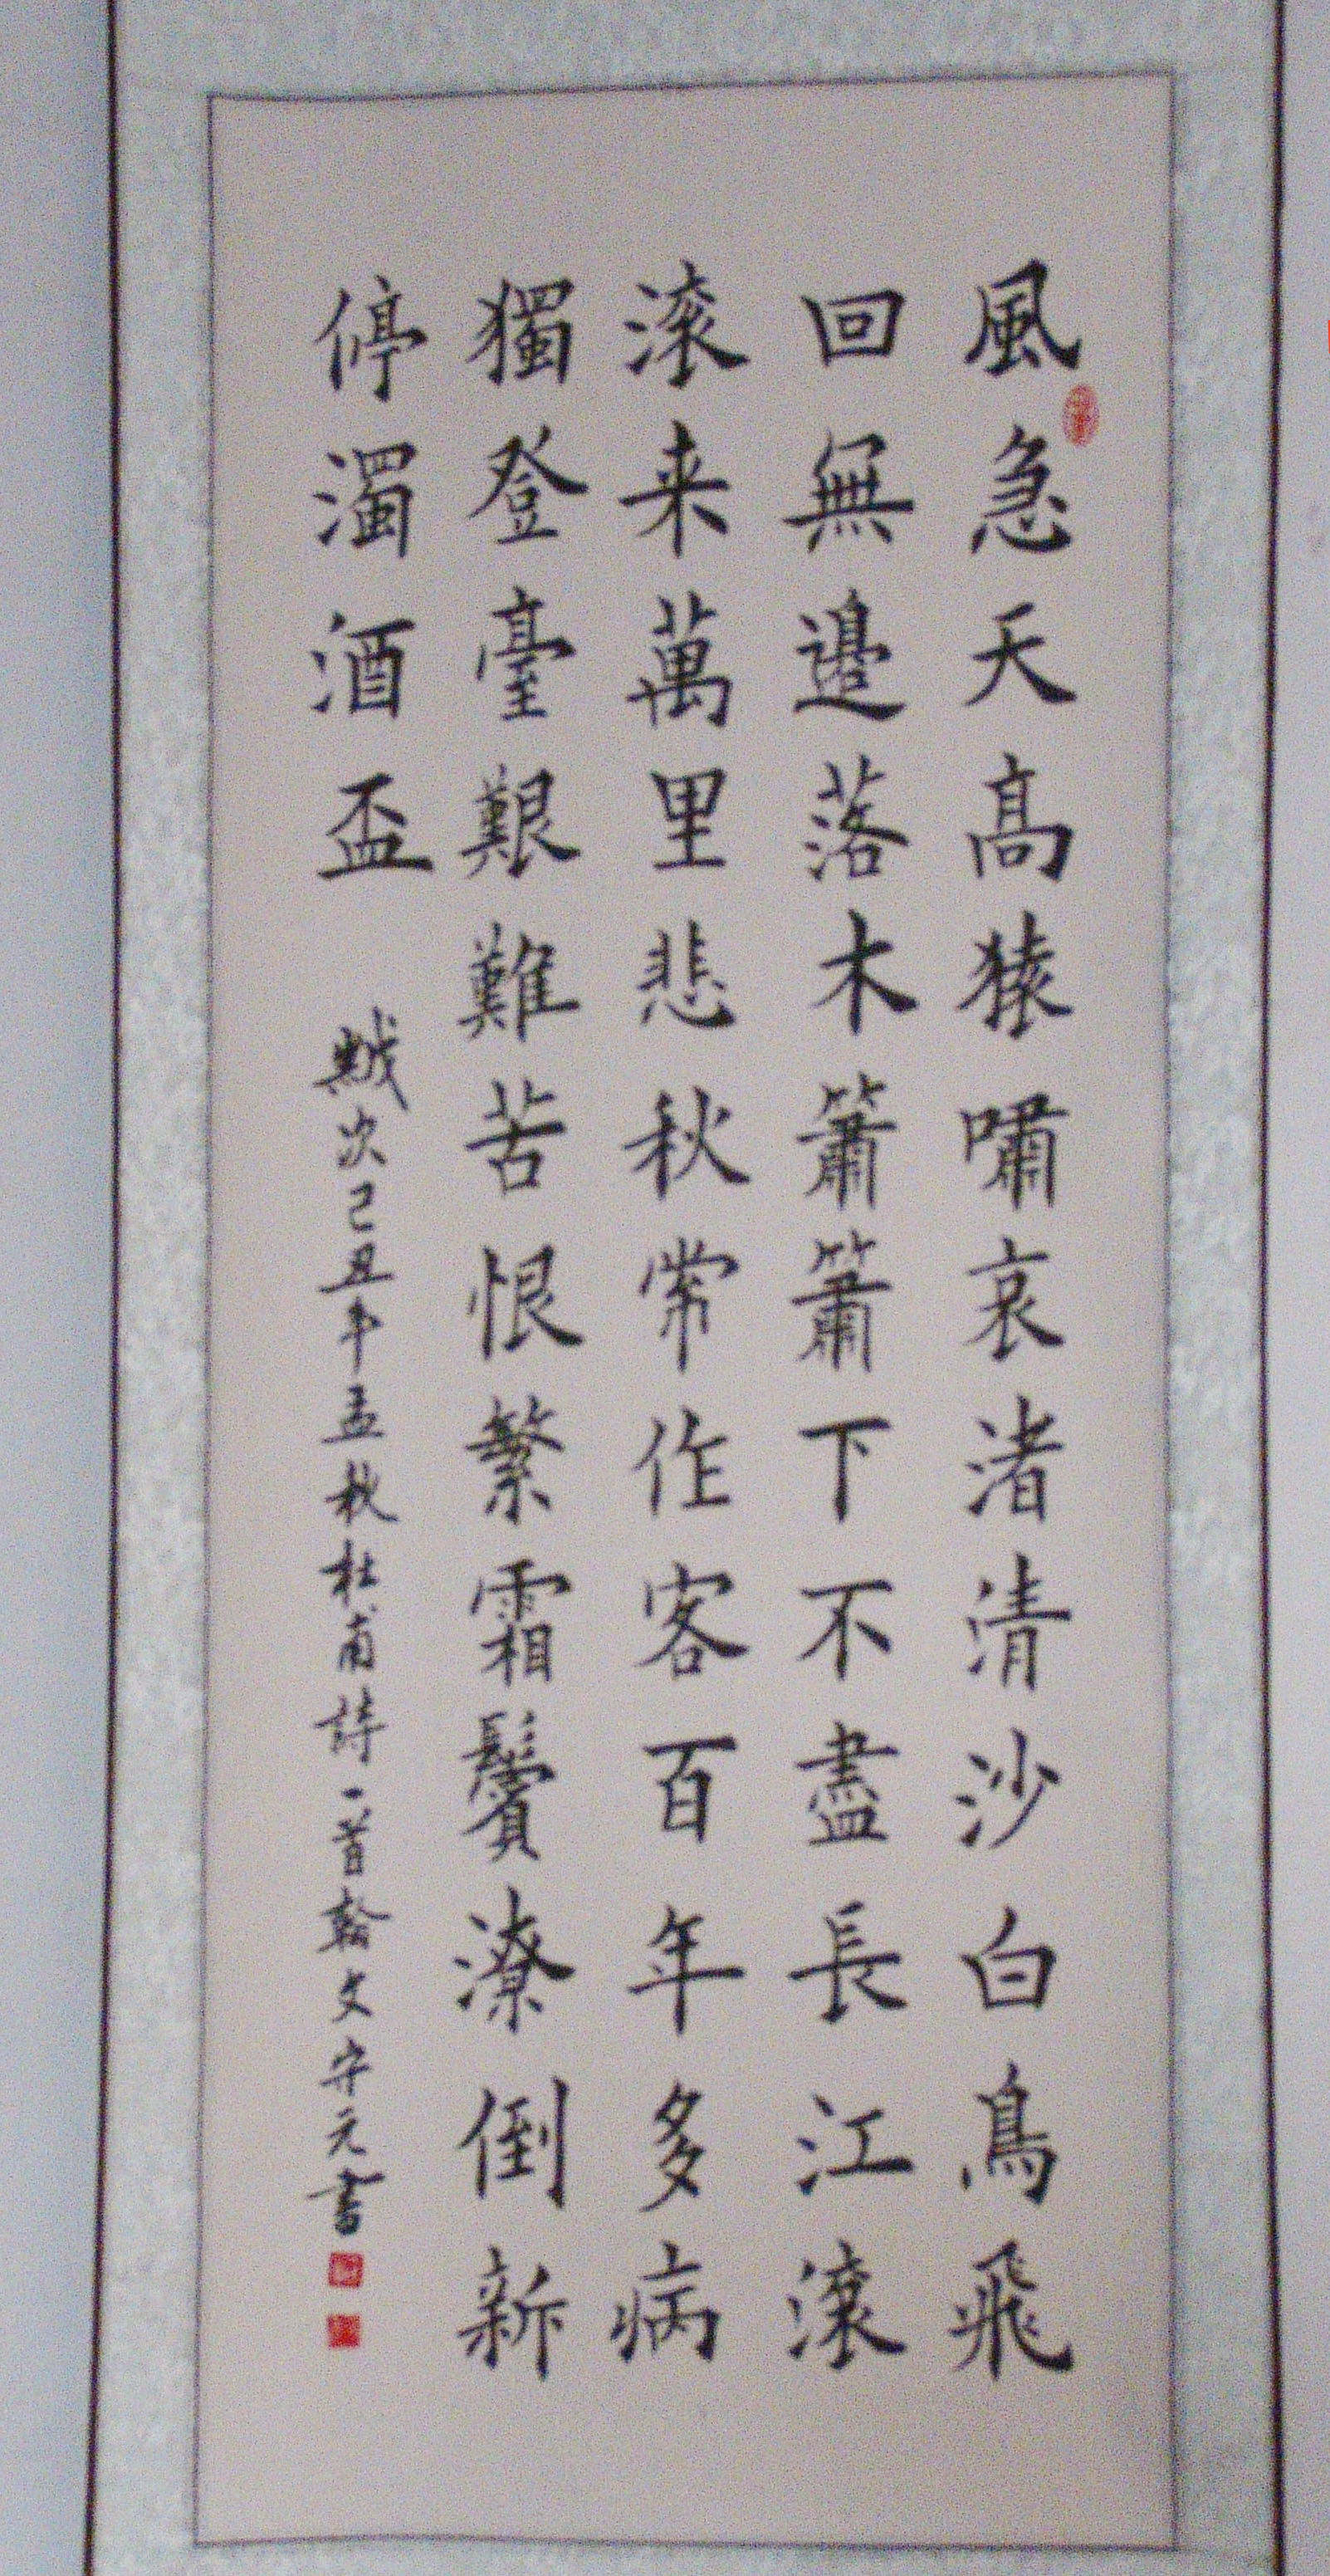 風急天高猿嘯哀渚清沙白鳥飛
回無邊落木簫簫下不盡長江滾
滾来萬里悲秋常作客百年多病
獨登臺艱難苦恨繁霜鬢潦倒新
停濁酒盃
歲次己丑年孟秋杜甫詩一首翰文守元書